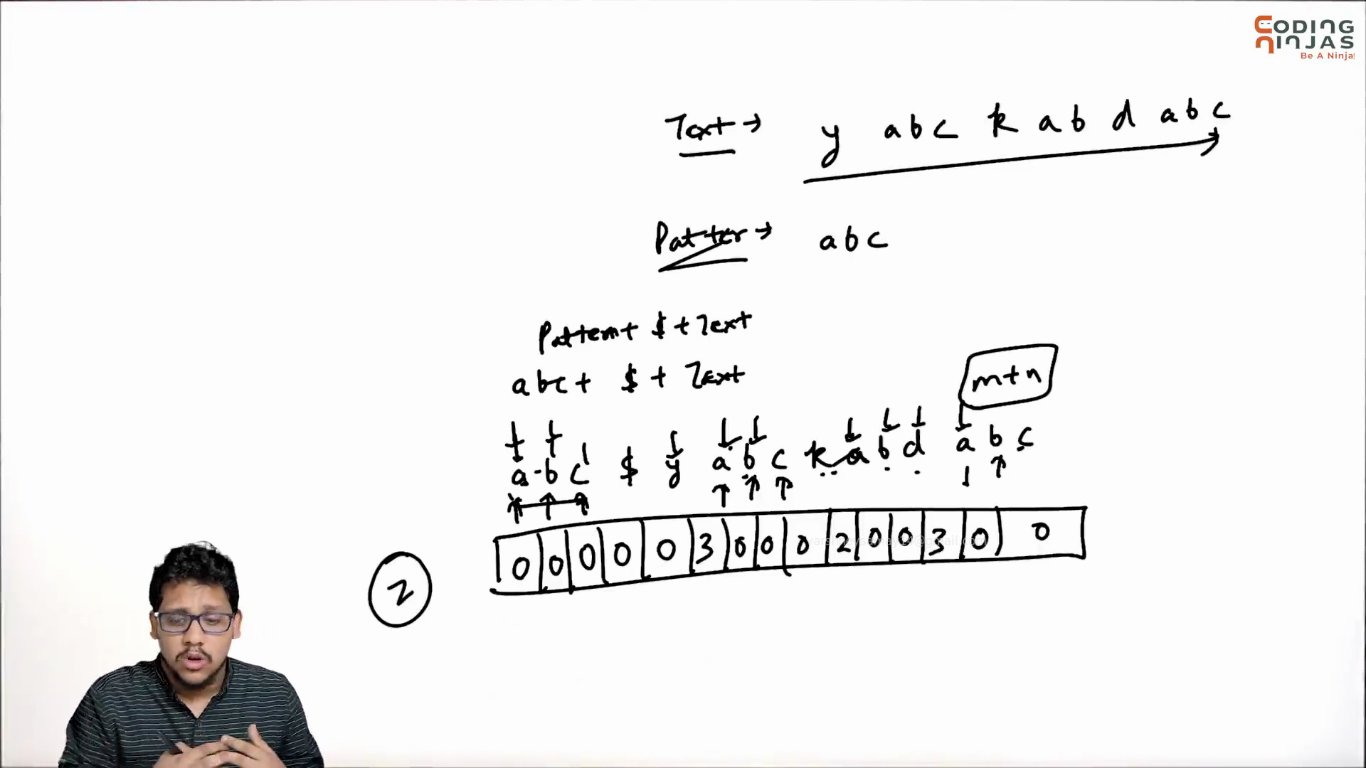 CODING
NINJAS
Be A Ninja!
Text → y abc k ab d abc
Patter → abc
Pattern + $ + Text
abc + $ + Text
m+n
a b c $ y a b c k a b d a b c
Z 0 0 0 0 0 3 0 0 0 2 0 0 3 0 0